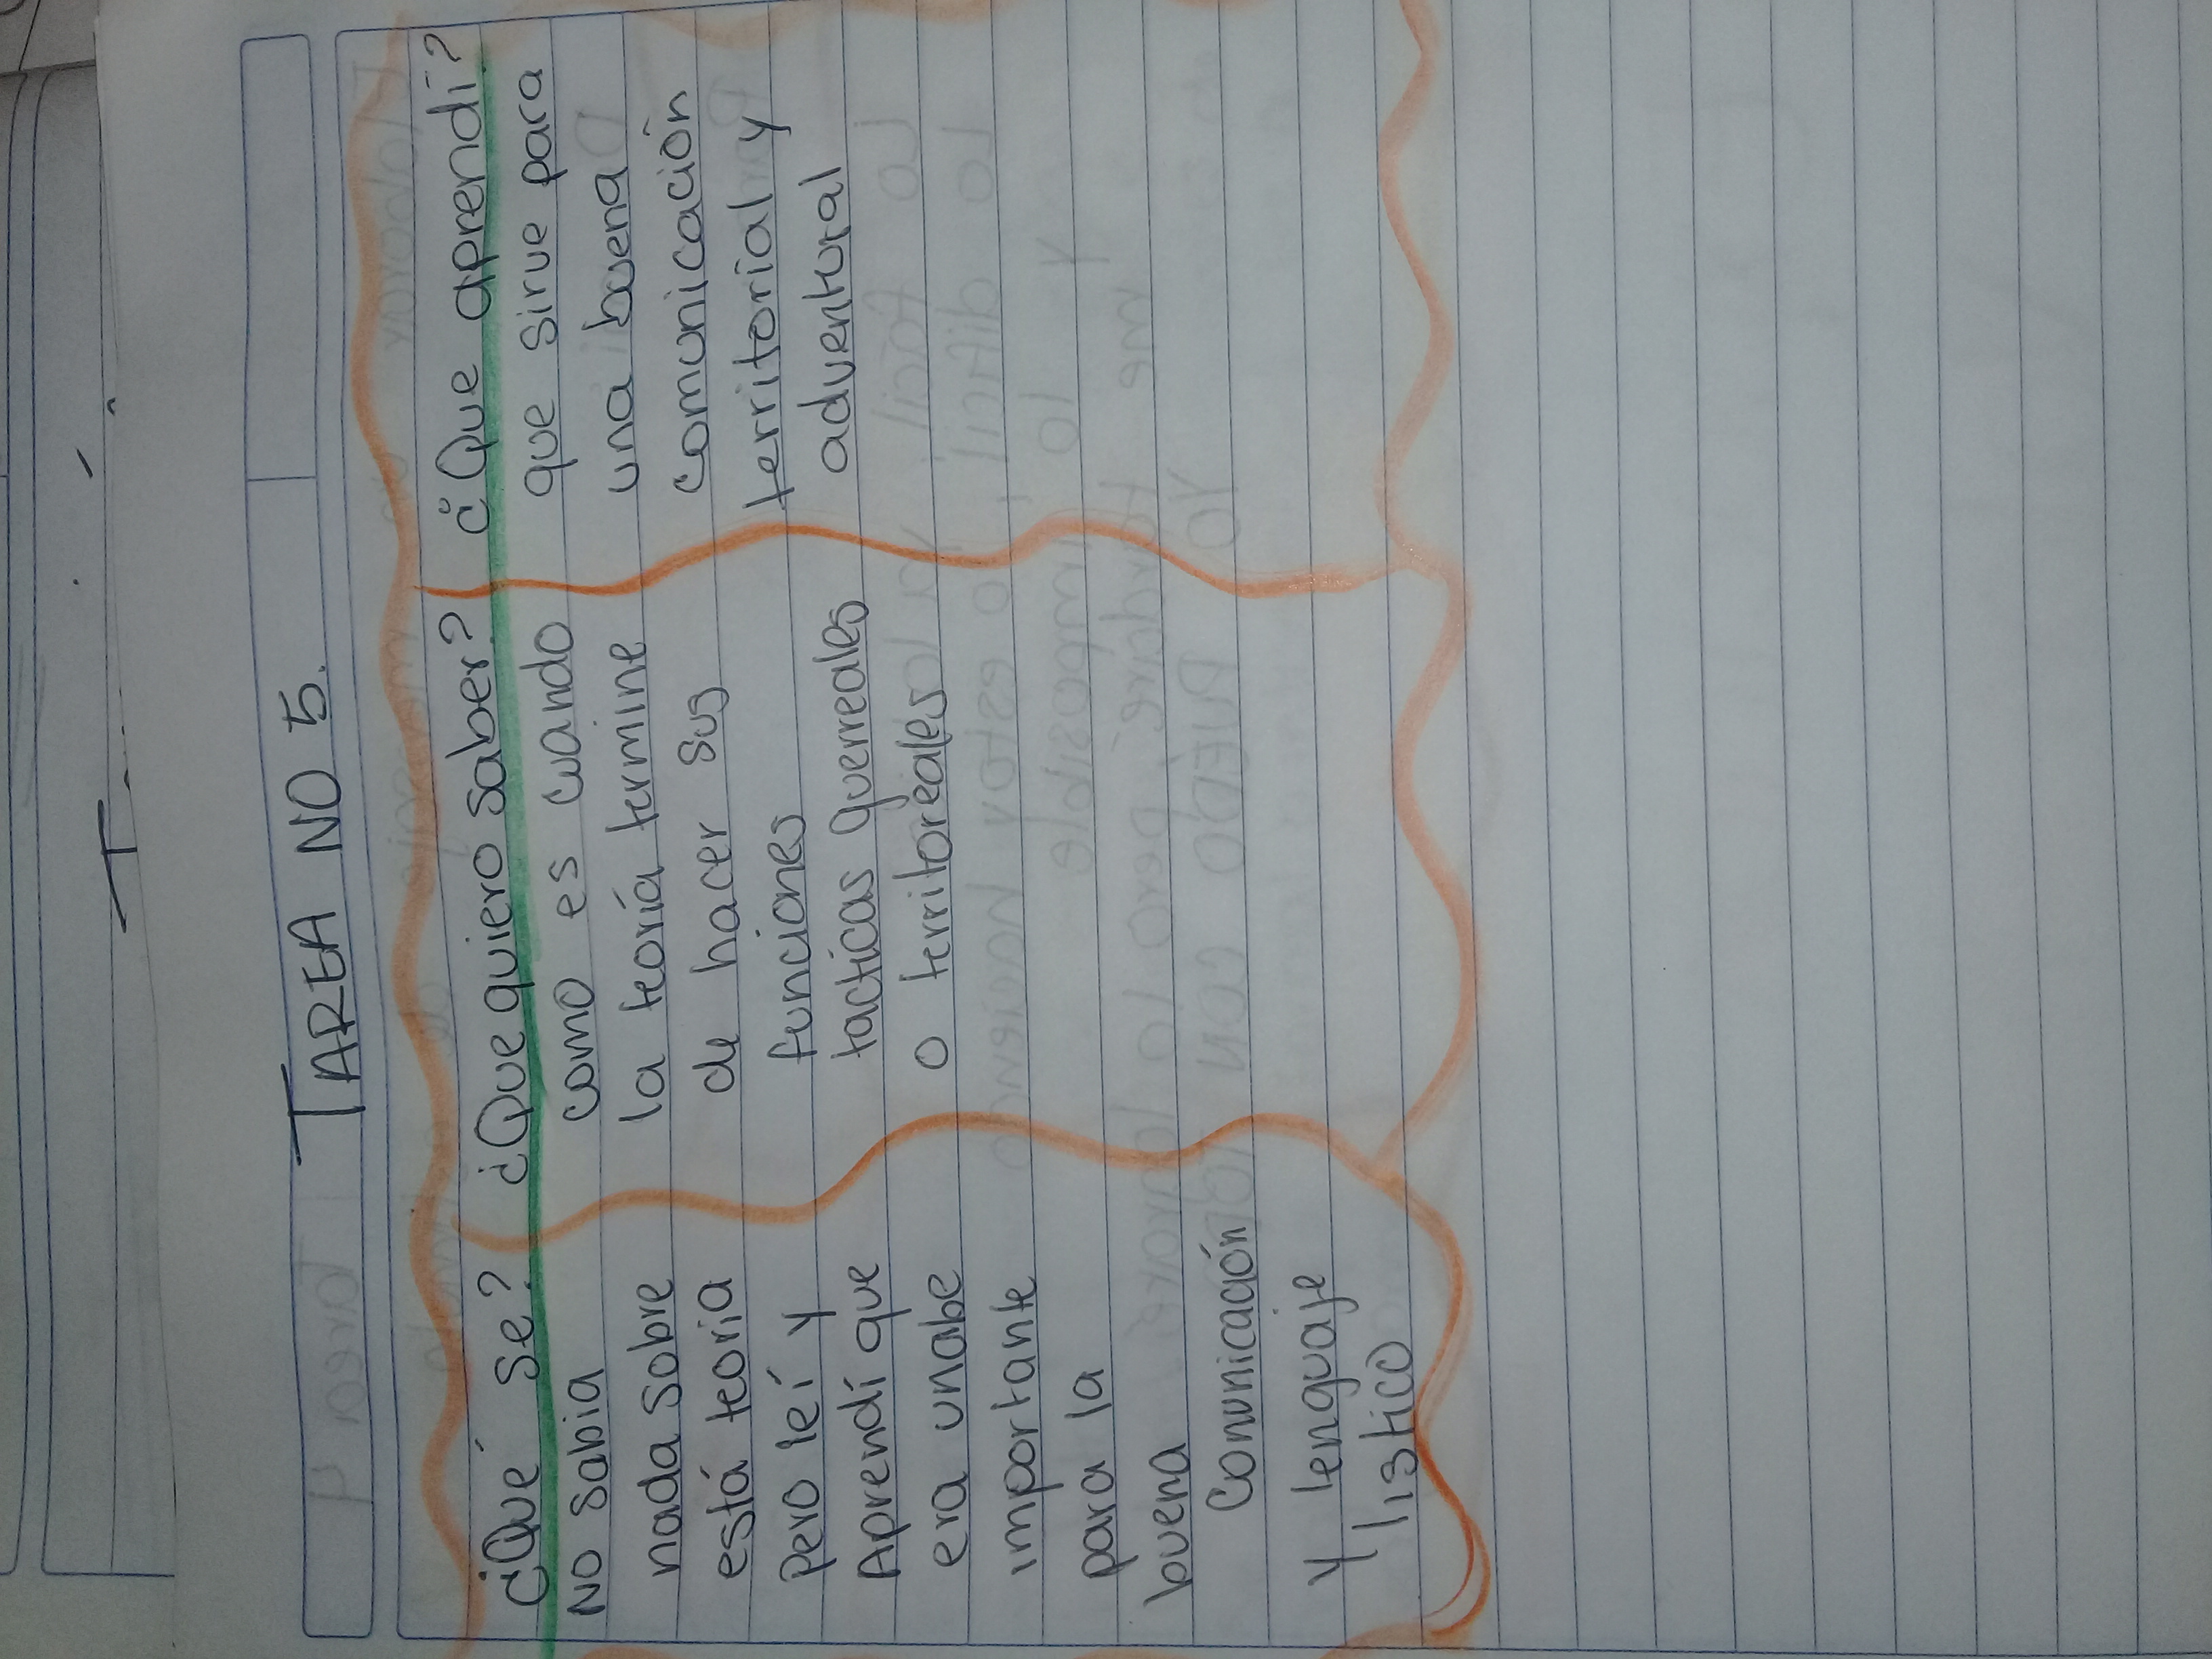 TAREA NO 5.
¿Qué se?
No sabia
nada sobre
está teoria
Pero leí y
Aprendí que
era unabe
importante
para la
buena
Comunicación
y lenguaje
listico
¿Que quiero saber?
como es cuando
la teoría termine
de hacer sus
funciones
tacticas guerreales
o territoreales
¿Que aprendí?
que sirve para
una buena
comunicación
territorial y
adventural